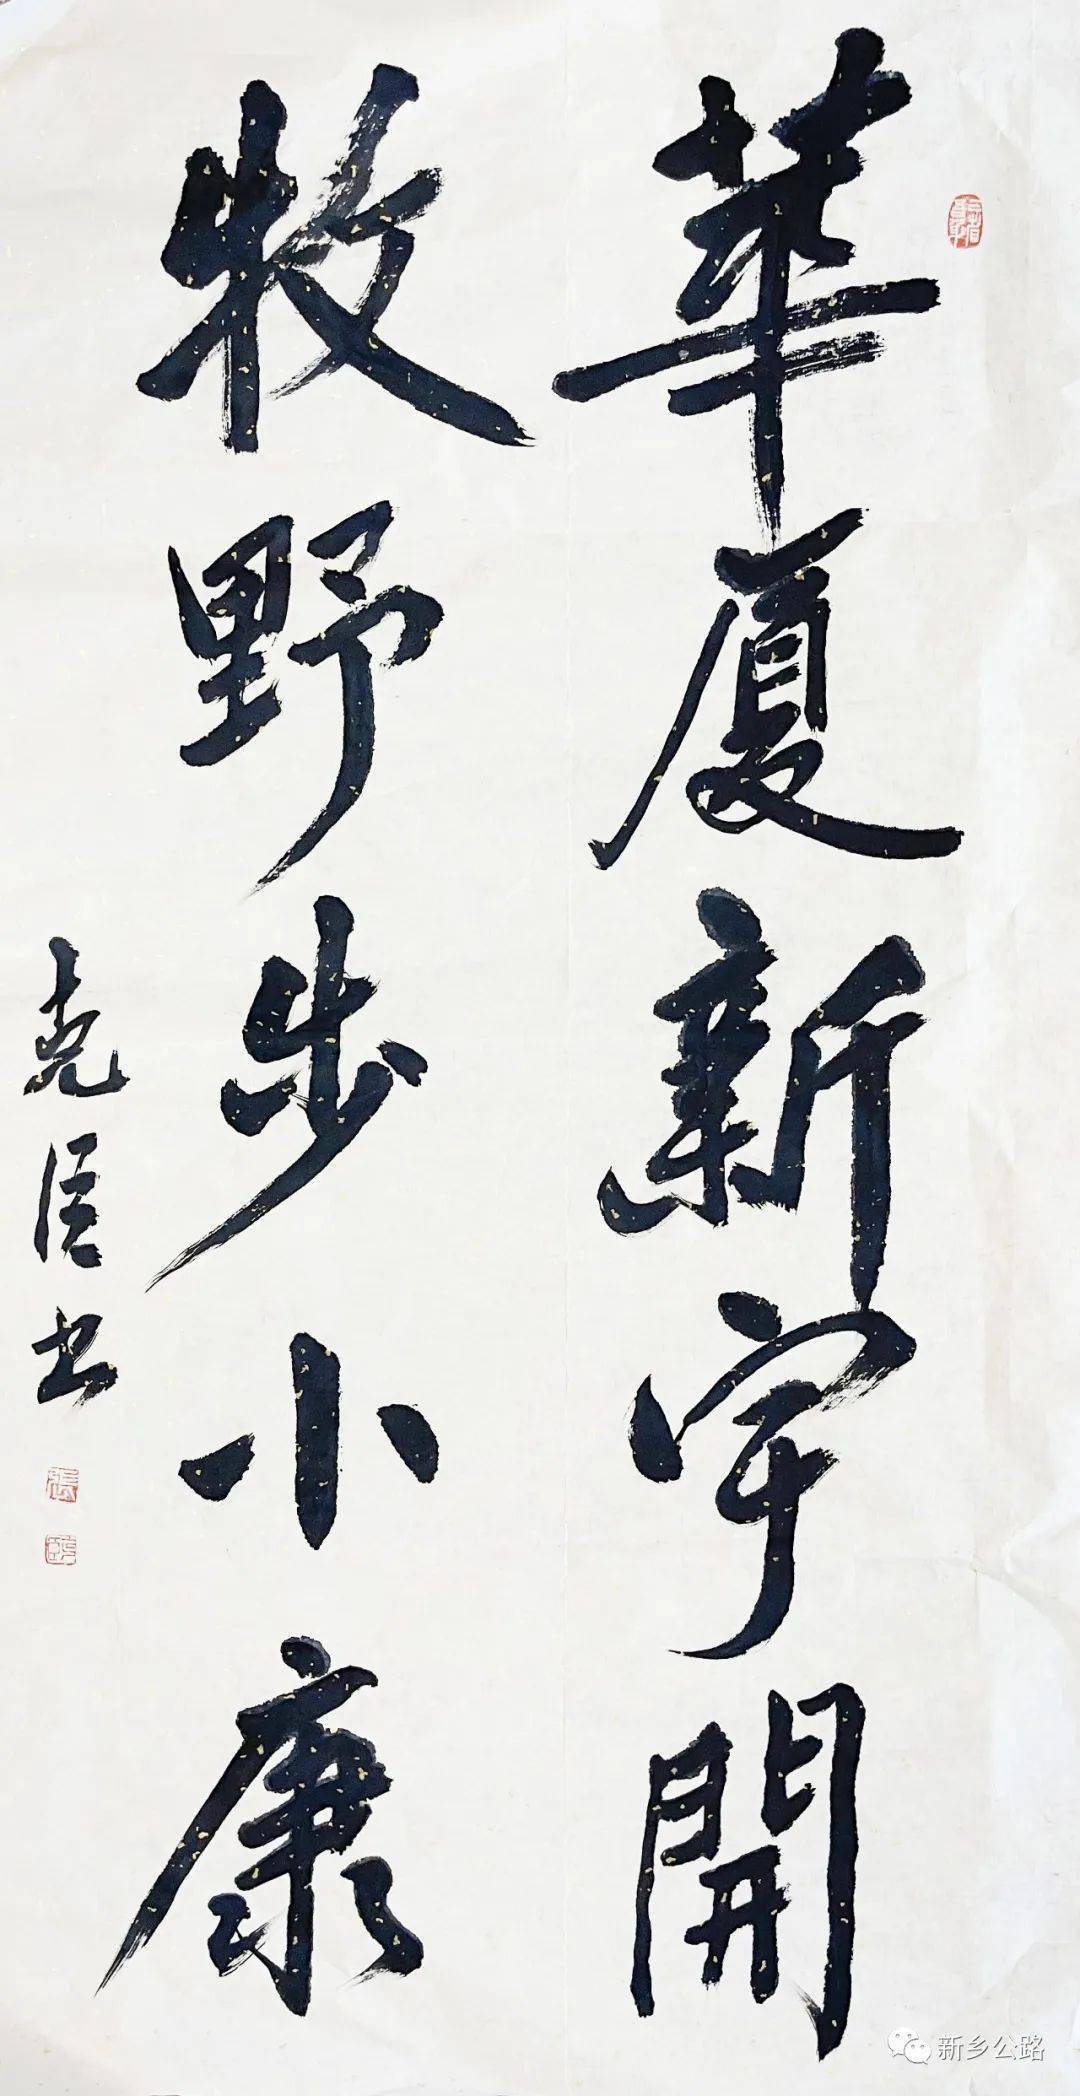 華夏新宇開
牧野步小康
尧臣书
張
新乡公路